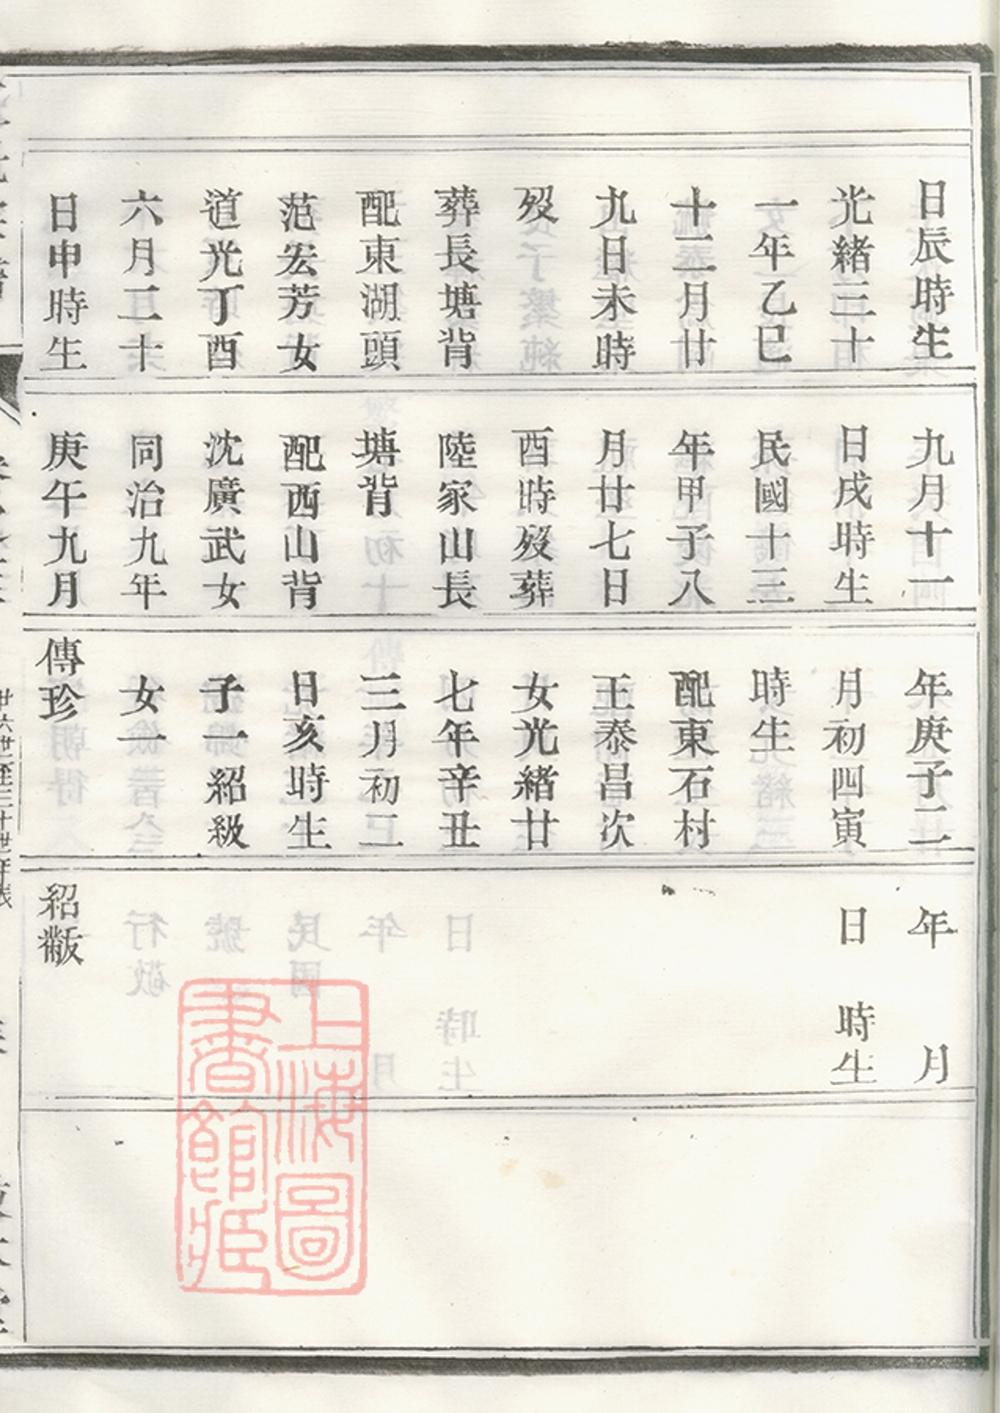 日辰時生
光緒三十
一年乙巳
十二月廿
九日未時
歿
葬長塘背
配東湖頭
范宏芳女
道光丁酉
六月二十
日申時生
九月十一
日戌時生
民國十三
年甲子八
月廿七日
酉時歿葬
陸家山長
塘背
配西山背
沈廣武女
同治九年
庚午九月
年庚子二
月初四寅
時生
配東石村
王泰昌次
女光緒廿
七年辛丑
三月初二
日亥時生
子一紹級
女一
傳珍
年 月
日 時生
紹黻
上海圖
書館藏